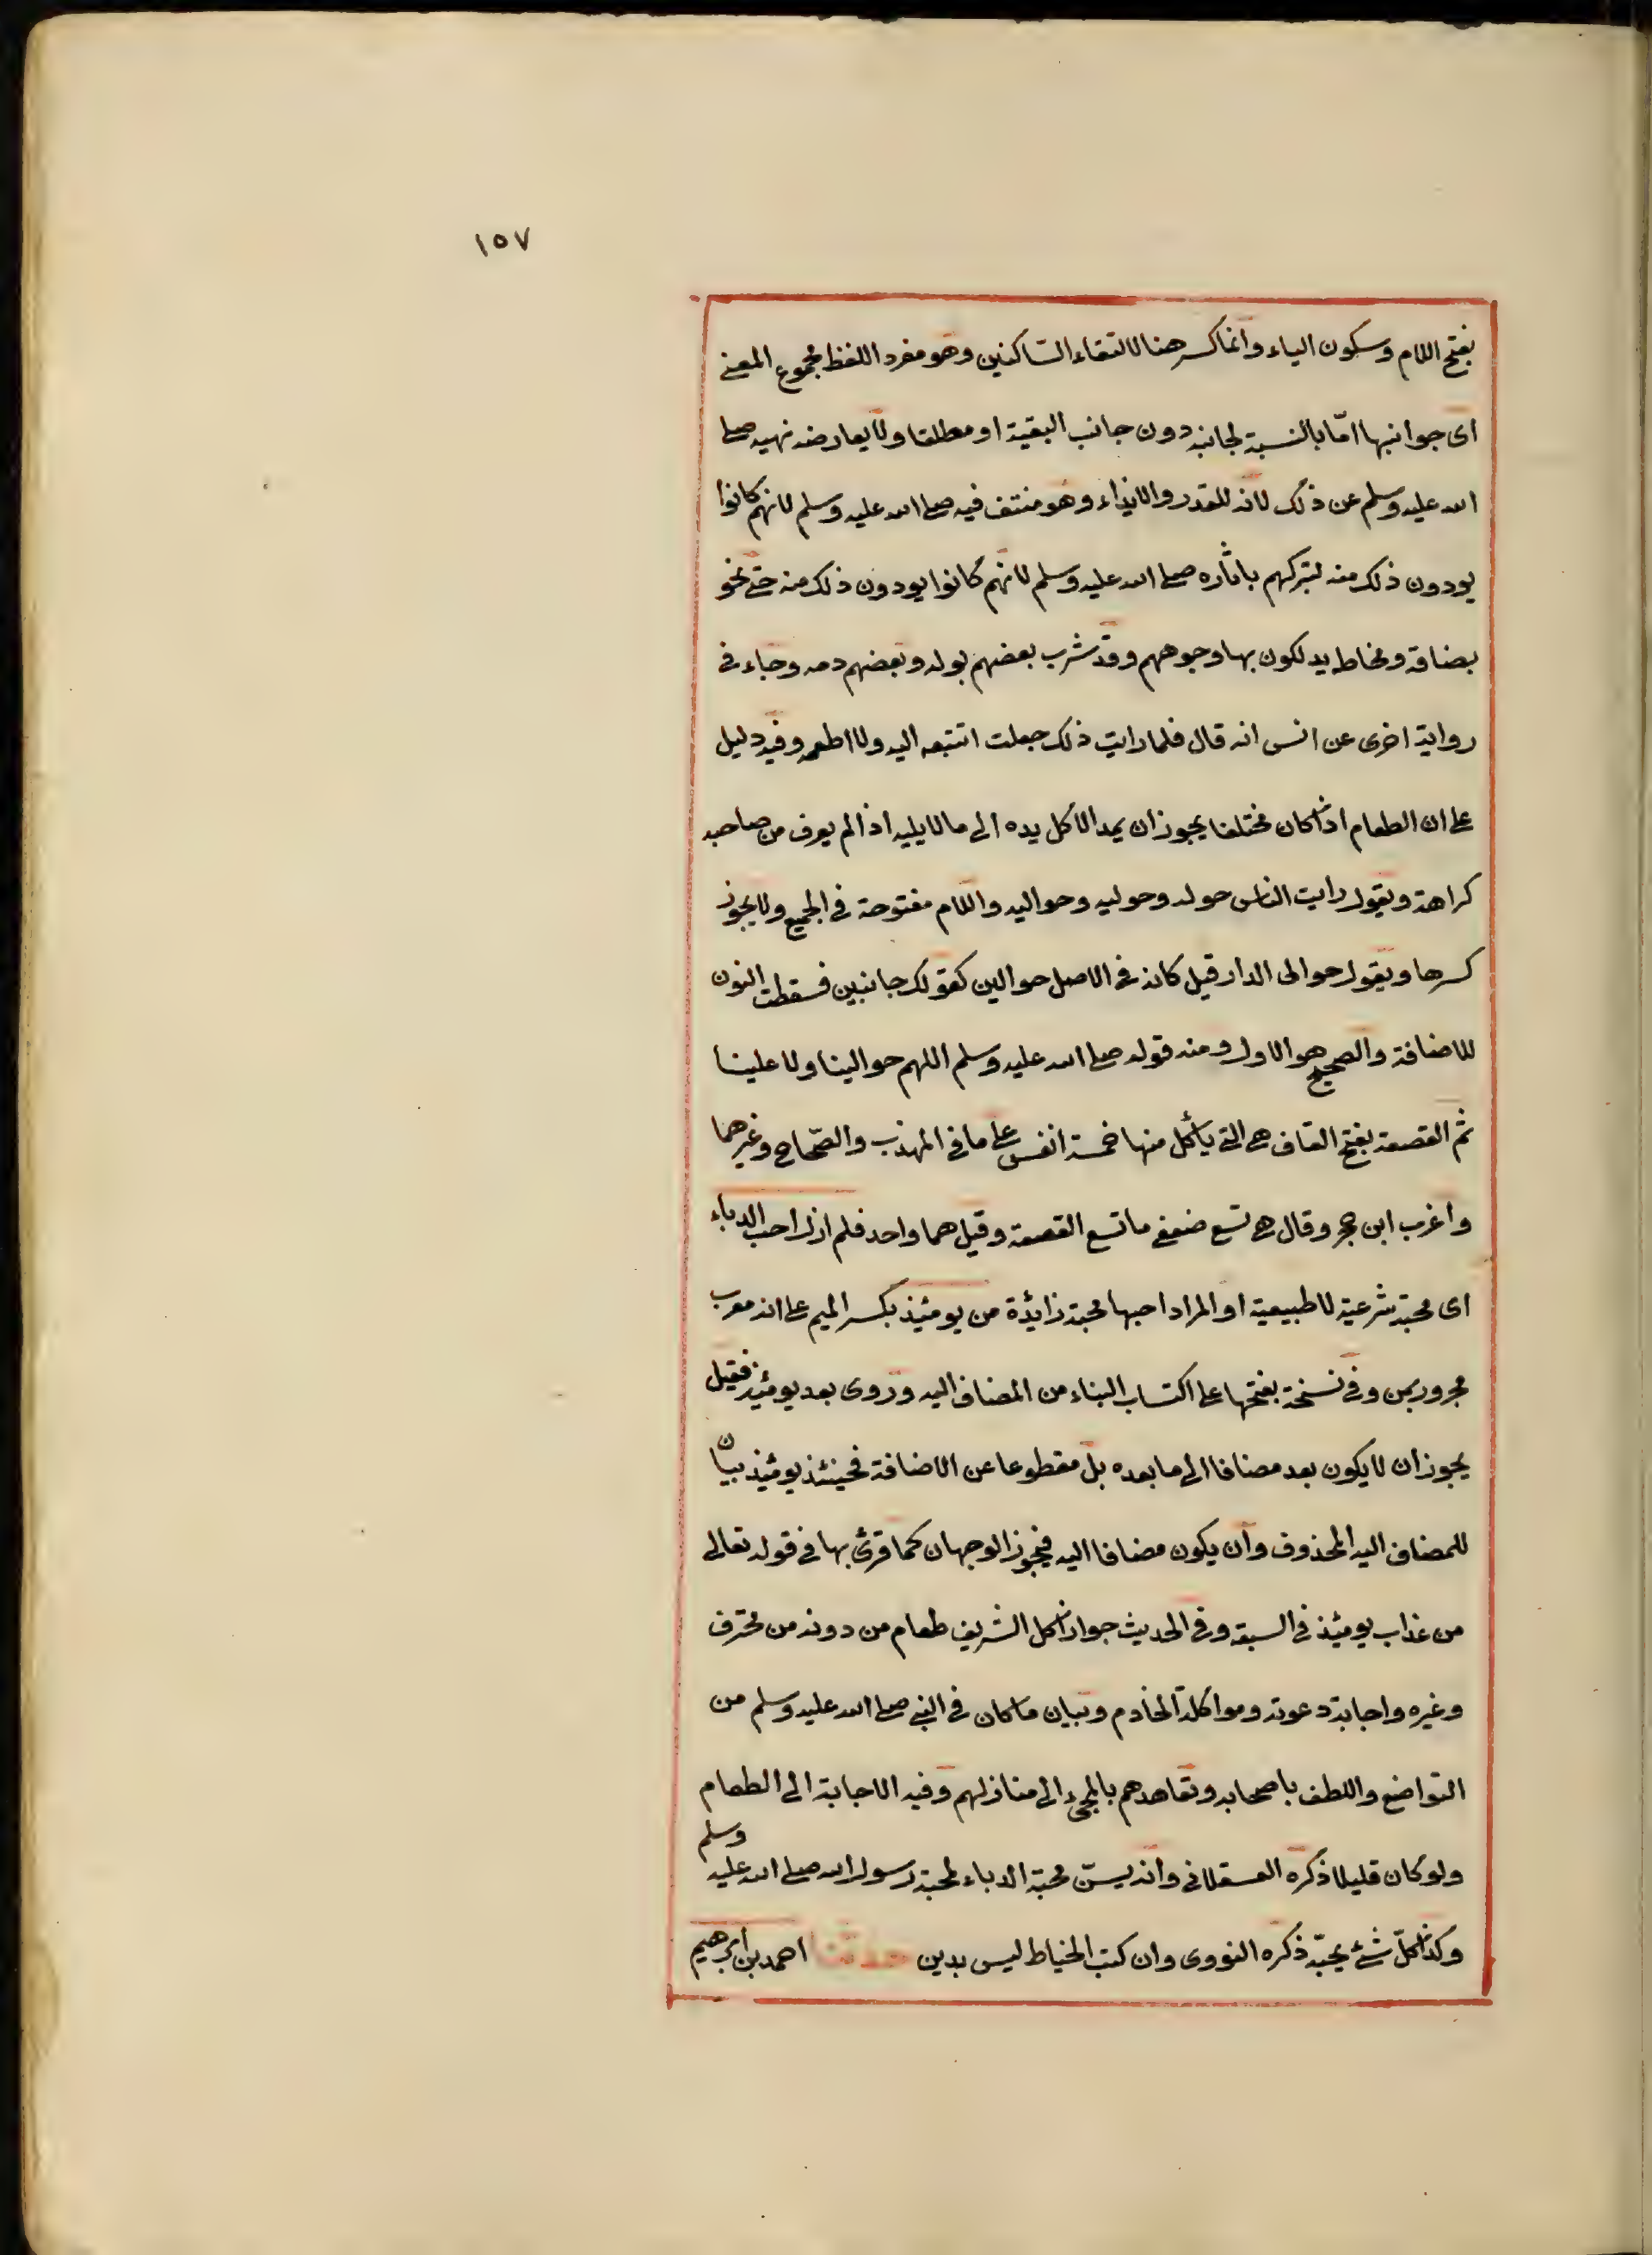 ١٥٧
بفتح اللام وسكون الياء وانما كسر هنا لالتقاء الساكنين وهو مفرد اللفظ مجموع المعنى
اى جوانبها امّا بالنسبة لجانبه دون جانب البقية او مطلقا ولا يعارضه نهيه صلى
الله عليه وسلم عن ذلك لانه للقذر والايذاء وهو منتف فيه صلى الله عليه وسلم لانهم كانوا
يودون ذلك منه لتبركهم باثاره صلى الله عليه وسلم لانهم كانوا يودون ذلك منه حتى نحو
بصاقه ومخاطه يدلكون بها وجوههم وقد شرب بعضهم بوله وبعضهم دمه وجاء فى
رواية اخرى عن انس انه قال فلما رايت ذلك جعلت اتتبعه اليه ولا اطعمه وفيه دليل
على ان الطعام اذا كان مختلفا يجوز ان يمد الاكل يده الى ما لا يليه اذا لم يعرف من صاحبه
كراهة ويقول رايت الناس حوله وحوليه وحواليه واللام مفتوحة فى الجميع ولا يجوز
كسرها ويقول حوالى الدار قيل كانه فى الاصل حوالين كقولك جانبين فسقطت النون
للاضافة والصحيح هو الاول ومنه قوله صلى الله عليه وسلم اللهم حوالينا ولا علينا
ثم القصعة بفتح القاف هى التى ياكل منها خمسة انفس على ما فى المهذب والصّحاح وغيرهما
واغرب ابن حجر وقال هى تسع ضعفى ما تسع القصعة وقيل هما واحد فلم ازل احب الدباء
اى محبة شرعية لا طبيعية او المراد احبها محبة زائدة من يومئذ بكسر الميم على انه معرب
مجرور بمن وفى نسخة بفتحها على اكتساب البناء من المضاف اليه وروى بعد يومئذ فقيل
يجوز ان لا يكون بعد مضافا الى ما بعده بل مقطوعا عن الاضافة فحينئذ يومئذ بيان
للمضاف اليه المحذوف وان يكون مضافا اليه فيجوز الوجهان كما قرئ بها فى قوله تعالى
من عذاب يومئذ فى السبعة وفى الحديث جواز اكل الشريف طعام من دونه من محترف
وغيره واجابة دعوته ومواكلة الخادم وبيان ما كان فى النبى صلى الله عليه وسلم من
التواضع واللطف باصحابه وتعاهدهم بالمجىء الى منازلهم وفيه الاجابة الى الطعام
ولو كان قليلا ذكره العسقلانى وانه يسنّ محبة الدباء لمحبة رسول الله صلى الله عليه وسلم
وكذا كلّ شئ يحبّه ذكره النووى وان كسب الخياط ليس بدين حدثنا احمد بن ابرهيم